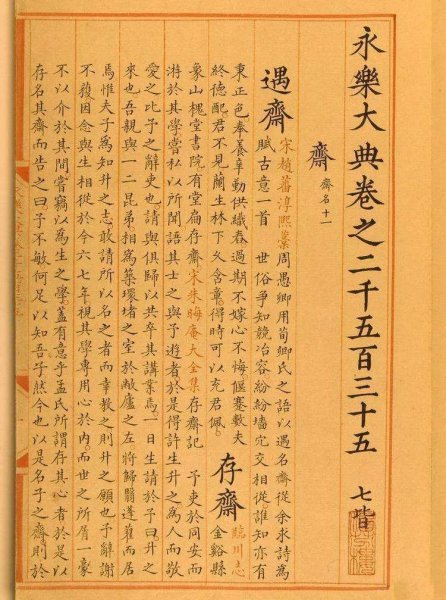 永樂大典卷之二千五百三十五 七皆
齋 齋名十一
遇齋 宋趙蕃淳熙藁周愚卿用荀卿氏之語以遇名齋從余求詩為
賦古意一首 世俗爭知競冶容紛紛墻穴交相從誰知亦有
秉正色奉養辛勤供織舂過期不嫁心不悔偃蹇數夫
終德配君不見蘭生林下久含薰得時可以充君佩
存齋 臨川志
金谿縣
象山槐堂書院有堂扁存齋宋朱晦庵大全集存齋記 予吏於同安而
游於其學嘗私以所聞語其士之與予遊者於是得許生升之為人而敬
愛之比予之辭吏也請與俱歸以共卒其講業焉一日生請於予曰升之
來也吾親與一二昆弟相為築環堵之室於敝廬之左將歸翳蓬藋而居
焉惟夫子為知升之志敢請所以名之者而幸教之則升之願也予辭謝
不獲因念與生相從於今六七年視其學專用心於內而世之所屑一豪
不以介於其間嘗竊以為生之學蓋有意乎孟氏所謂存其心者於是以
存名其齋而告之曰予不敏何足以知吾子然今也以是名子之齋則於